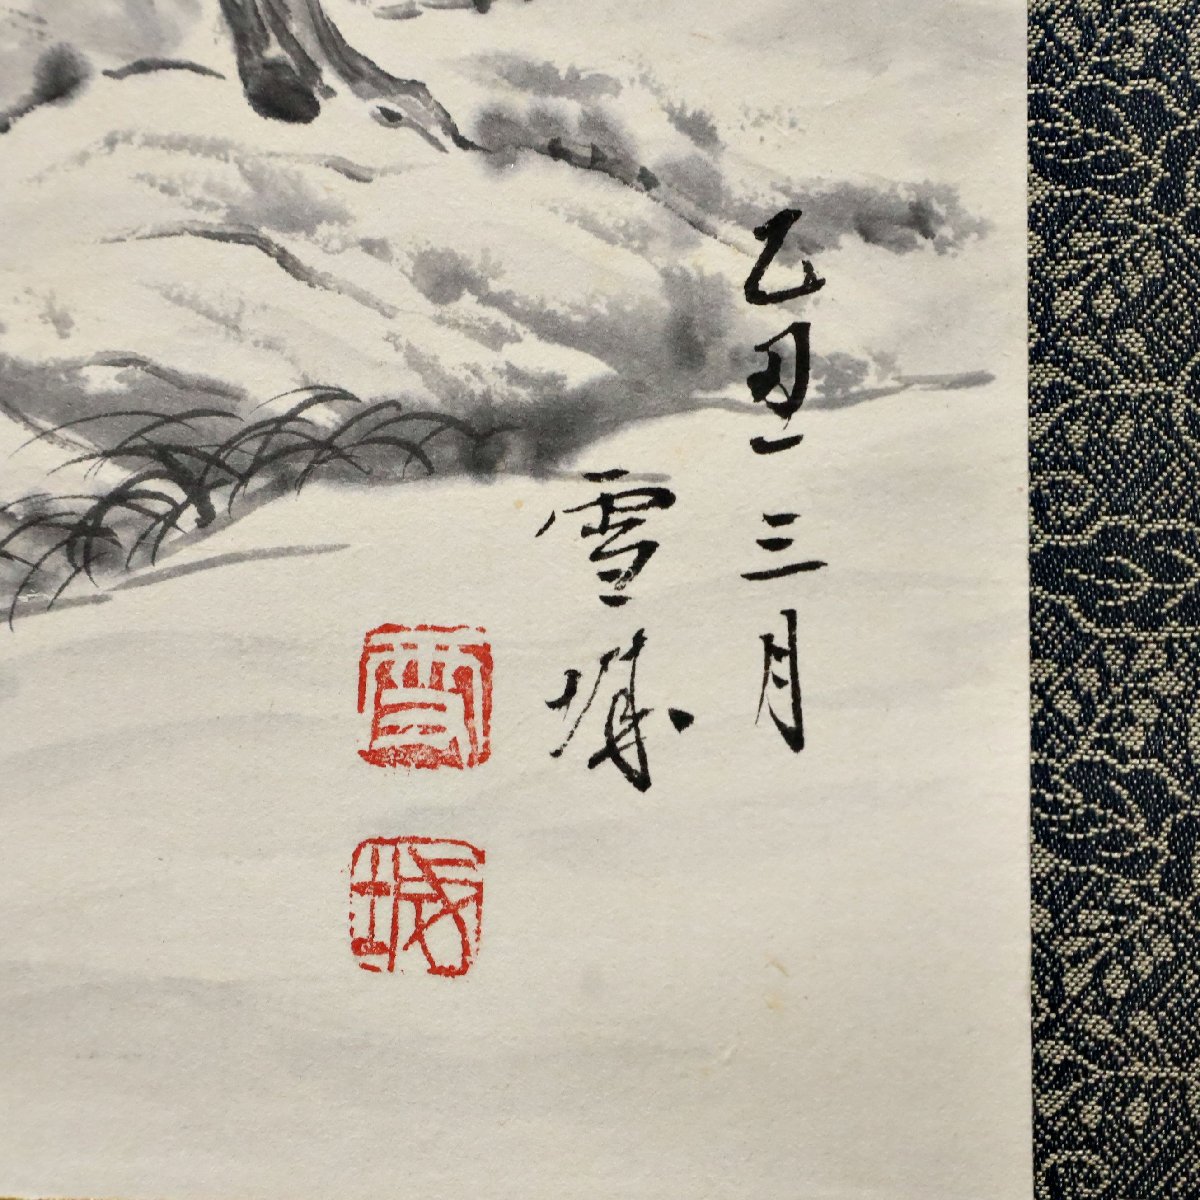 乙丑三月
雪城
雪
城